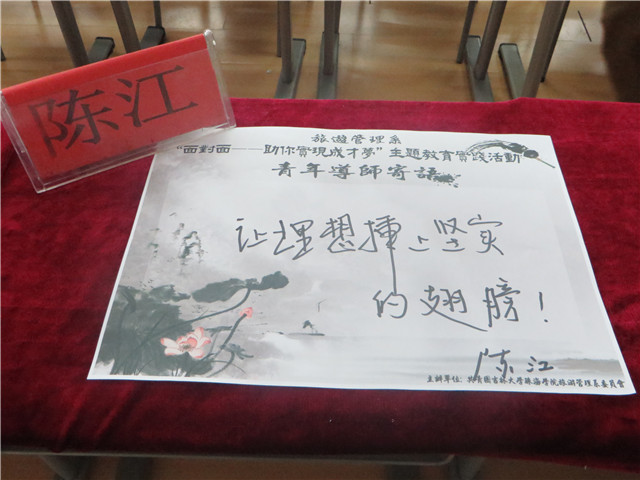 陈江
旅遊管理系
“面對面——助你實現成才夢”主題教育實踐活動
青年導師寄語
让理想插上坚实
的翅膀！
陈江
主辦單位：共青團吉林大學珠海學院旅遊管理系委員會